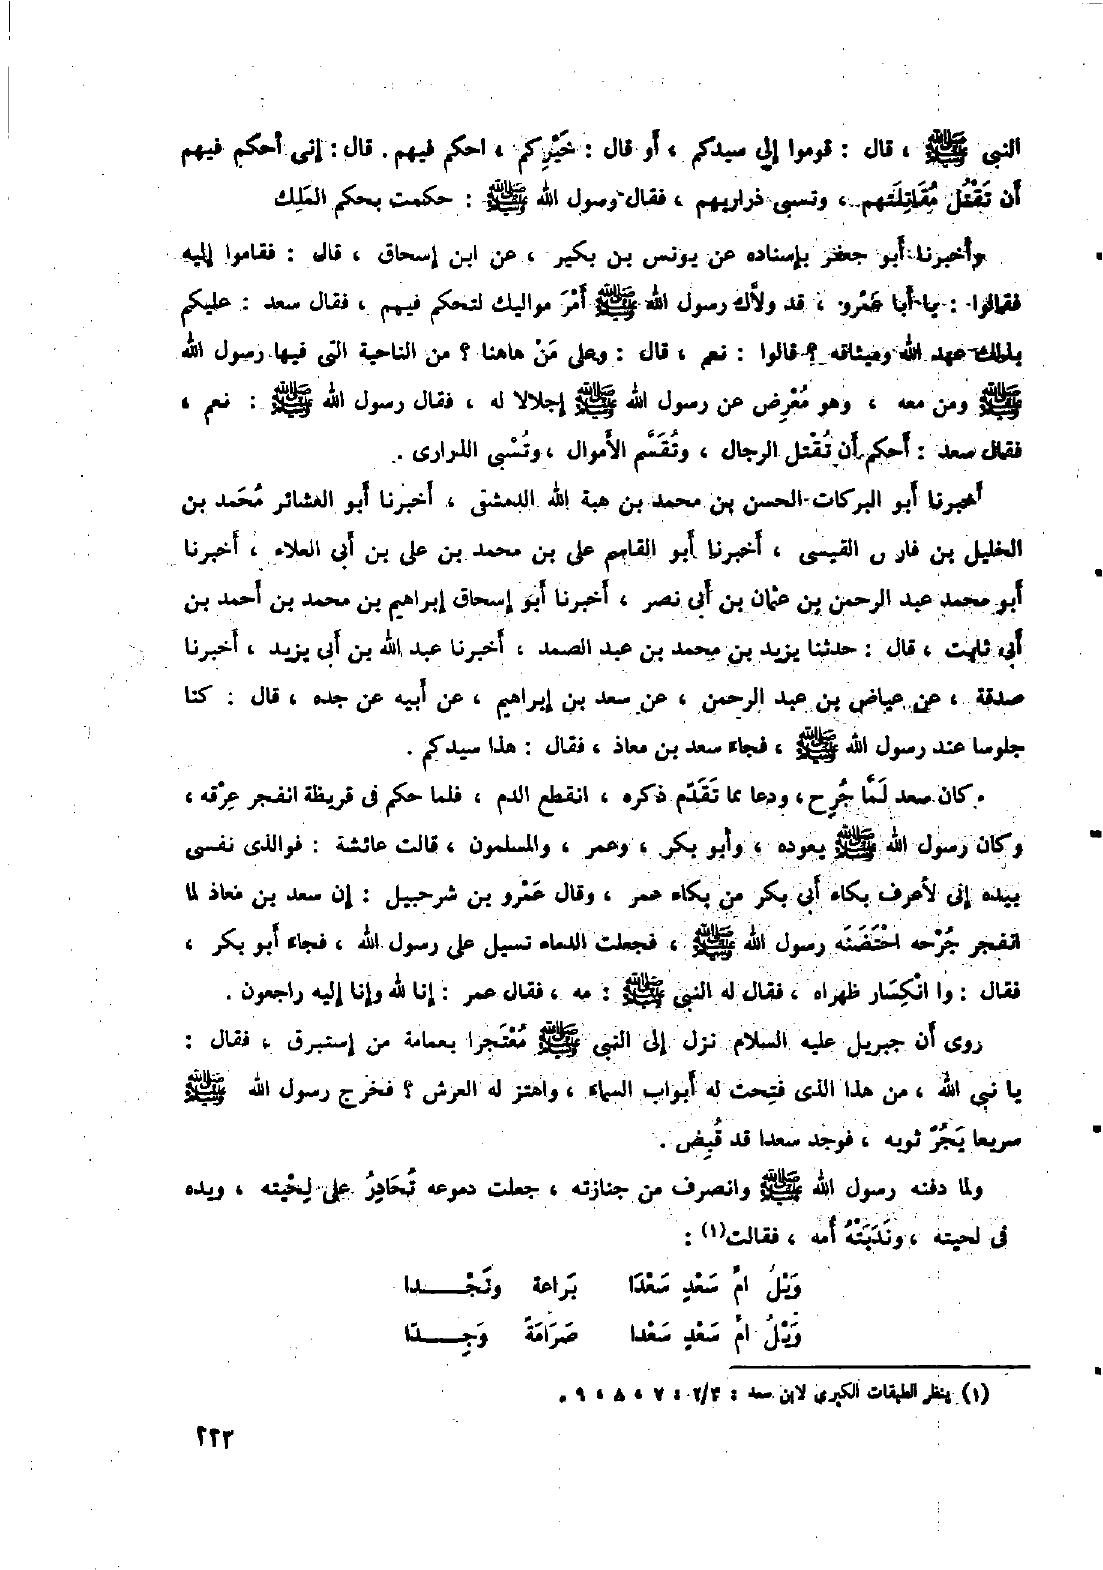 النبي ﷺ ، قال : قوموا إلى سيدكم ، أو قال : خَيْرِكم ، احكم فيهم . قال : إنى أحكم فيهم
أن تَقْتُل مُقَاتِلَتَهم ، وتسبى ذراريهم ، فقال رسول الله ﷺ : حكمت بحكم المَلِك
وأخبرنا أبو جعفر بإسناده عن يونس بن بكير ، عن ابن إسحاق ، قال : فقاموا إليه
فقالوا : يا أبا عَمْرو ، قد ولاَّك رسول الله ﷺ أَمْرَ مواليك لتحكم فيهم ، فقال سعد : عليكم
بذلك عهد الله وميثاقه ؟ قالوا : نعم ، قال : وعلى مَنْ هاهنا ؟ من الناحية التى فيها رسول الله
ﷺ ومن معه ، وهو مُعْرِض عن رسول الله ﷺ إجلالا له ، فقال رسول الله ﷺ : نعم ،
فقال سعد : أحكم أن تُقْتل الرجال ، وتُقَسَّم الأموال ، وتُسْبى الذرارى .
أخبرنا أبو البركات الحسن بن محمد بن هبة الله الدمشقى ، أخبرنا أبو العشائر مُحَمد بن
الخليل بن فارس القيسى ، أخبرنا أبو القاسم على بن محمد بن على بن أبى العلاء ، أخبرنا
أبو محمد عبد الرحمن بن عثمان بن أبى نصر ، أخبرنا أبو إسحاق إبراهيم بن محمد بن أحمد بن
أبى ثابت ، قال : حدثنا يزيد بن محمد بن عبد الصمد ، أخبرنا عبد الله بن أبى يزيد ، أخبرنا
صدقة ، عن عياض بن عبد الرحمن ، عن سعد بن إبراهيم ، عن أبيه عن جده ، قال : كنا
جلوسا عند رسول الله ﷺ ، فجاء سعد بن معاذ ، فقال : هذا سيدكم .
وكان سعد لَمَّا جُرِح ، ودعا بما تَقَدّم ذكره ، انقطع الدم ، فلما حكم فى قريظة انفجر عِرْقه ،
وكان رسول الله ﷺ يعوده ، وأبو بكر ، وعمر ، والمسلمون ، قالت عائشة : فوالذى نفسى
بيده إنى لأعرف بكاء أبى بكر من بكاء عمر ، وقال عَمْرو بن شرحبيل : إن سعد بن معاذ لما
انفجر جُرْحه احْتَضَنَه رسول الله ﷺ ، فجعلت الدماء تسيل على رسول الله ، فجاء أبو بكر ،
فقال : وا انْكِسَار ظهراه ، فقال له النبي ﷺ : مه ، فقال عمر : إنا لله وإنا إليه راجعون .
روى أن جبريل عليه السلام نزل إلى النبي ﷺ مُعْتَجرا بعمامة من إستبرق ، فقال :
يا نبي الله ، من هذا الذى فتِحت له أبواب السماء ، واهتز له العرش ؟ فخرج رسول الله ﷺ
سريعا يَجُرّ ثوبه ، فوجد سعدا قد قُبِض .
ولما دفنه رسول الله ﷺ وانصرف من جنازته ، جعلت دموعه تُحَادِرُ على لِحْيته ، ويده
فى لحيته ، ونَدَبَتْهُ أمه ، فقالت(١) :
وَيْلُ امِّ سَعْدٍ سَعْدَا بَرَاعة ونَجْـــدا
وَيْلُ امِّ سَعْدٍ سَعْدا صَرَامَةً وَجِـــدّا
(١) ينظر الطبقات الكبرى لابن سعد : ٢/٣ : ٧ ، ٨ ، ٩ .
٢٢٣